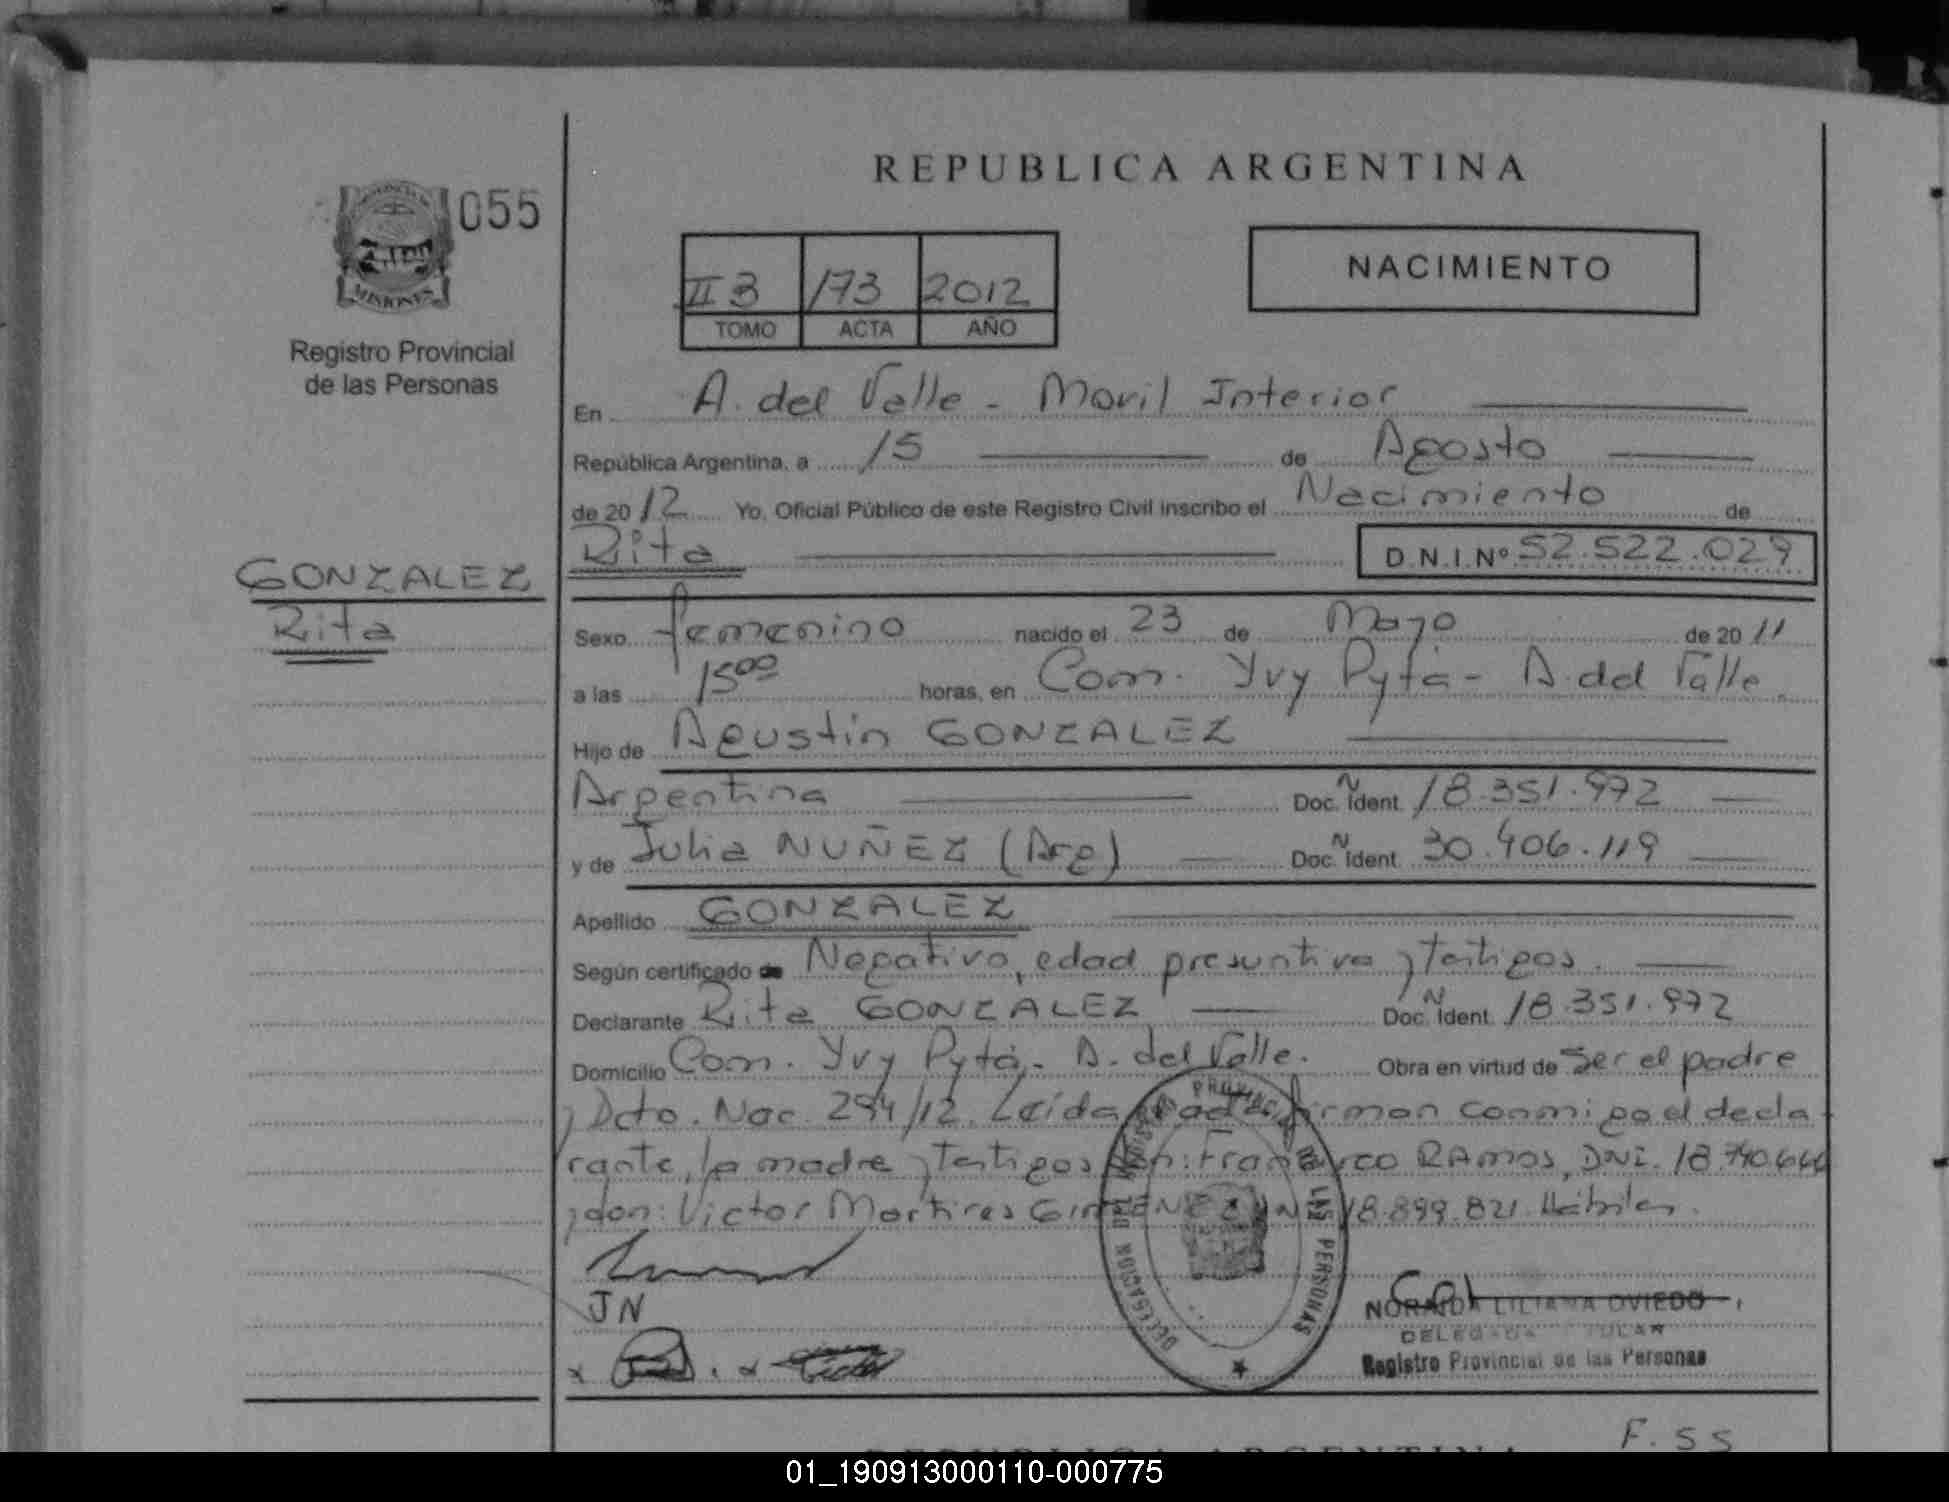 REPUBLICA ARGENTINA
055
MISIONES
Registro Provincial
de las Personas
II 3 173 2012
TOMO ACTA AÑO
NACIMIENTO
En A. del Valle - Movil Interior
República Argentina, a 15 de Agosto
de 2012 Yo, Oficial Público de este Registro Civil inscribo el Nacimiento de
Rita D.N.I.Nº 52.522.029
GONZALEZ
Rita
Sexo femenino nacido el 23 de Mayo de 2011
a las 15 00 horas, en Com. Yvy Pytá - A. del Valle.
Hijo de Agustin GONZALEZ
Argentina Doc. Ident. N 18.351.972
y de Julia NUÑEZ (Arg) Doc. Ident. N 30.406.119
Apellido GONZALEZ
Según certificado de Negativo, edad presuntiva y testigos.
Declarante Rita GONZALEZ Doc. Ident. N 18.351.972
Domicilio Com. Yvy Pytá - A. del Valle. Obra en virtud de Ser el padre
y Dcto. Nac. 294/12. Leída el acta firman conmigo el decla-
rante, la madre y testigos don: Francisco RAMOS, DNI. 18.740.644
y don: Victor Martires GIMENEZ DNI 18.899.821. Hábiles.
JN
DELEGACION DEL REGISTRO PROVINCIAL DE LAS PERSONAS
NORAIDA LILIANA OVIEDO
DELEGADA TITULAR
Registro Provincial de las Personas
F. 55
REPUBLICA ARGENTINA
01_190913000110-000775